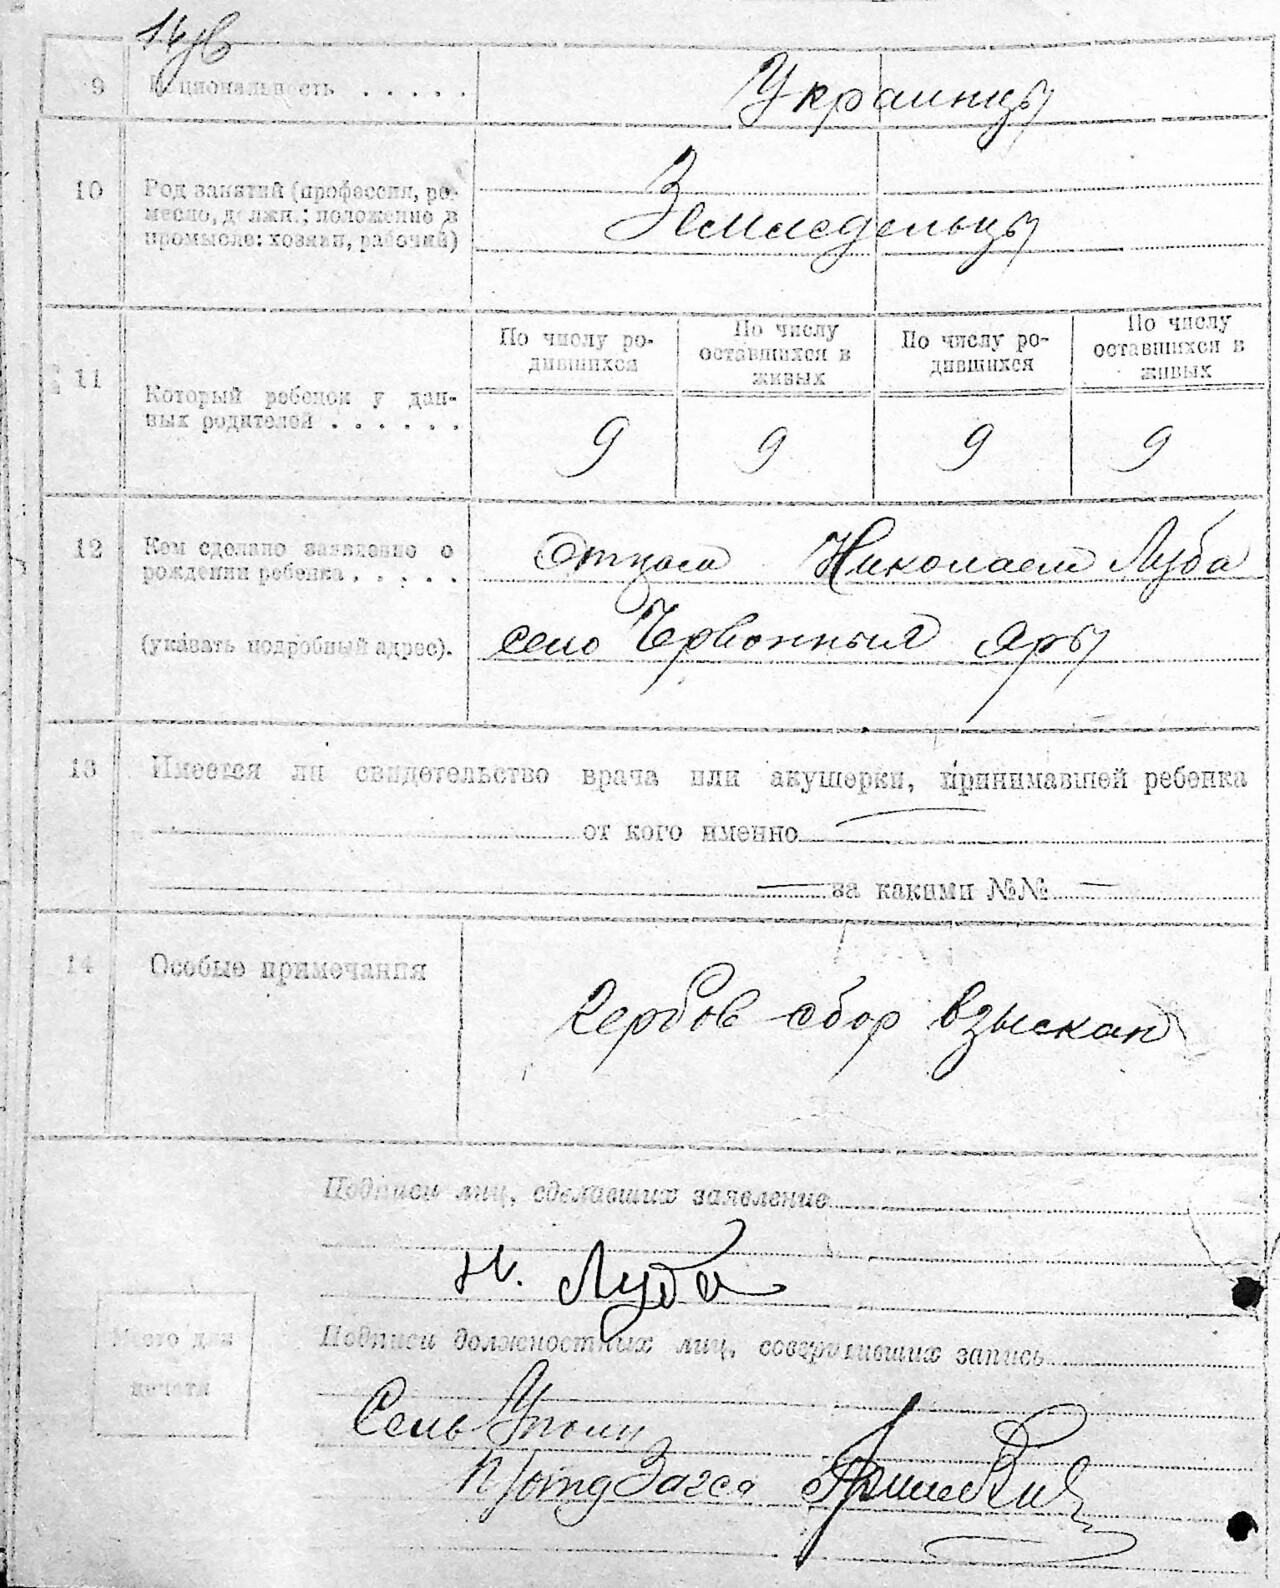 14 об
9 Национальность . . . . . Украинцы
10 Род занятий (профессия, ре-
месло, должн.; положение в
промысле: хозяин, рабочий)
Земледельцы
По числу ро-
дившихся
По числу
оставшихся в
живых
По числу ро-
дившихся
По числу
оставшихся в
живых
11 Который ребенок у дан-
ных родителей . . . . . .
9 9 9 9
12 Кем сделано заявление о
рождении ребенка . . . . .
Отцом Николаем Луба
(указать подробный адрес). село Червонныя Яры
13 Имеется ли свидетельство врача или акушерки, принимавшей ребенка
от кого именно
за какими №№
14 Особые примечания
Гербов сбор взыскан
Подписи лиц, сделавших заявление
Н. Луба
Подписи должностных лиц, совершивших запись
Место для
печати
Сель Уполн
п/отд Загса